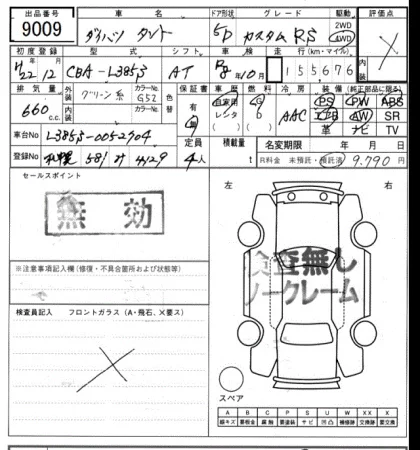 出品番号 車名 ドア形状 グレード 駆動 評価点
9009 ダイハツ タント 5D カスタム RS 2WD 4WD X
初度登録 型式 シフト 車検 走行(km・マイル) 内装
H22/12 CBA-L385S AT R8年10月 155676
排気量 外装 グリーン系 カラーNo. G52 色替 保証書 車歴 燃料 冷房 装備(純正部品に限る)
660 c.c. 内装 カラーNo. 有 自家用 G AAC PS PW ABS
レンタ AW SR
車台No L385S-0052904 革 ナビ TV
定員 積載量 名変期限 年 月 日
登録No 581 4129 4人 t R料金 未預託・預託済 9,790円
セールスポイント
無効
左 右
※注意事項記入欄(修復・不具合箇所および状態等)
検査無し
ノークレーム
検査員記入 フロントガラス(A・飛石、X要ス)
X
スペア
A B C P S U W XX X
線キズ 要板金 腐蝕 要塗装 サビ 凹凸 補修跡 交換跡 要交換